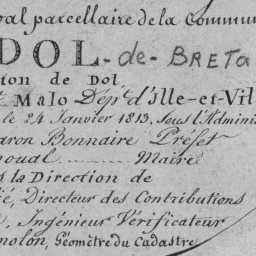 pal parcellaire de la Commun
DOL-de-BRETA
tion de Dol
Malo Dépt d'Ille-et-Vil
le 24 Janvier 1813, Sous l'Admini
aron Bonnaire Préfet
noual Maire
s la Direction de
ié, Directeur des Contributions
, Ingénieur Vérificateur
nolon, Géomètre du Cadastre